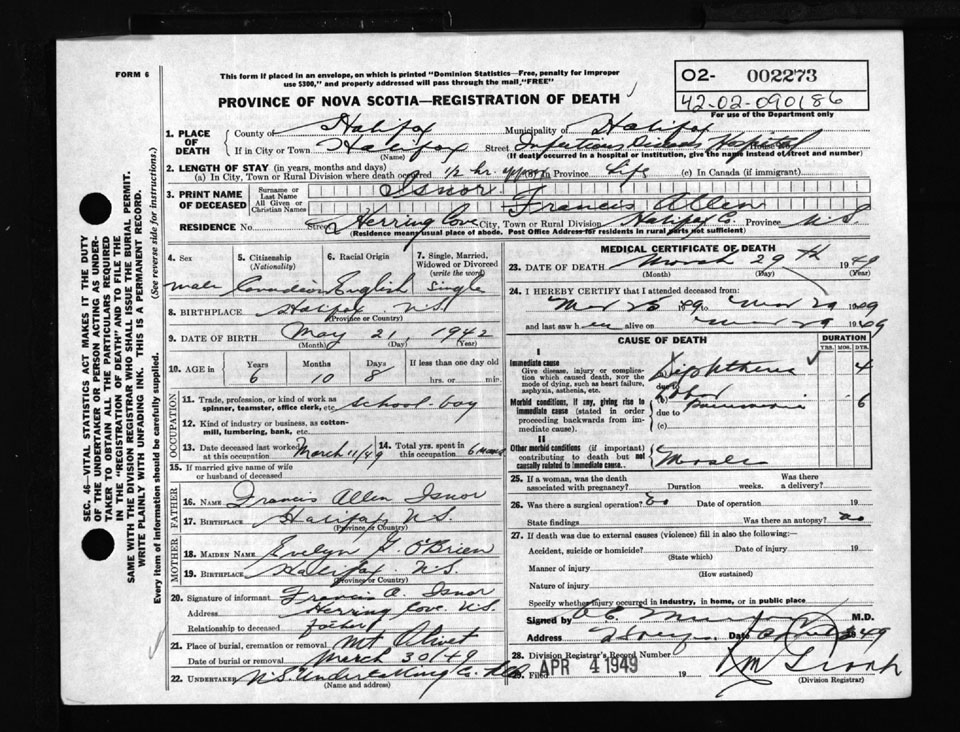 FORM 6
This form if placed in an envelope, on which is printed "Dominion Statistics—Free, penalty for improper
use $300," and properly addressed will pass through the mail, "FREE"
O2- 002273
42-02-090186
For use of the Department only
PROVINCE OF NOVA SCOTIA—REGISTRATION OF DEATH
1. PLACE OF DEATH
County of Halifax Municipality of Halifax
If in City or Town Halifax Street Infectious Diseases Hospital
(Name) (If death occurred in a hospital or institution, give the name instead of street and number)
2. LENGTH OF STAY (in years, months and days)
(a) In City, Town or Rural Division where death occurred 1/2 hr. (b) In Province Life (c) In Canada (if immigrant)
3. PRINT NAME OF DECEASED
Surname or Last Name Isnor
All Given or Christian Names Francis Allen
RESIDENCE No. Street Herring Cove City, Town or Rural Division Halifax C. Province N.S.
(Residence means usual place of abode. Post Office Address for residents in rural parts not sufficient)
4. Sex 5. Citizenship (Nationality) 6. Racial Origin 7. Single, Married, Widowed or Divorced (write the word)
male Canadian English Single
8. BIRTHPLACE Halifax N.S.
(Province or Country)
9. DATE OF BIRTH May 21, 1942
(Month) (Day) (Year)
10. AGE in Years Months Days If less than one day old
6 10 8 hrs. or min.
OCCUPATION
11. Trade, profession, or kind of work as spinner, teamster, office clerk, etc. school boy
12. Kind of industry or business, as cotton-mill, lumbering, bank, etc.
13. Date deceased last worked at this occupation March 11/49 14. Total yrs. spent in this occupation 6
15. If married give name of wife or husband of deceased
FATHER
16. NAME Francis Allen Isnor
17. BIRTHPLACE Halifax N.S.
(Province or Country)
MOTHER
18. MAIDEN NAME Evelyn G. O'Brien
19. BIRTHPLACE Halifax N.S.
(Province or Country)
20. Signature of informant Francis A. Isnor
Address Herring Cove N.S.
Relationship to deceased father
21. Place of burial, cremation or removal Mt Olivet
Date of burial or removal March 30/49
22. UNDERTAKER N.S. Undertaking Co. Ltd
(Name and address)
MEDICAL CERTIFICATE OF DEATH
23. DATE OF DEATH March 29th 1949
(Month) (Day) (Year)
24. I HEREBY CERTIFY that I attended deceased from:
Mar 1949 to Mar 29 1949
and last saw h alive on Mar 29 1949
CAUSE OF DEATH
DURATION
YRS. MOS. DYS.
I
Immediate cause
Give disease, injury or complication which caused death, NOT the mode of dying, such as heart failure, asphyxia, asthenia, etc.
(a) Diphtheria 4
due to
Morbid conditions, if any, giving rise to immediate cause (stated in order proceeding backwards from immediate cause).
(b) Lobar pneumonia 6
due to
(c)
II
Other morbid conditions (if important) contributing to death but not causally related to immediate cause.
Measles
25. If a woman, was the death associated with pregnancy? Duration weeks. Was there a delivery?
26. Was there a surgical operation? Date of operation 19
State findings Was there an autopsy? no
27. If death was due to external causes (violence) fill in also the following:—
Accident, suicide or homicide? Date of injury 19
(State which)
Manner of injury
(How sustained)
Nature of injury
Specify whether injury occurred in industry, in home, or in public place
Signed by M.D.
Address Date 49
28. Division Registrar's Record Number
29. Filed APR 4 1949 19
(Division Registrar)
SEC. 46—VITAL STATISTICS ACT MAKES IT THE DUTY
OF THE UNDERTAKER OR PERSON ACTING AS UNDERTAKER
TO OBTAIN ALL THE PARTICULARS REQUIRED
IN THE "REGISTRATION OF DEATH" AND TO FILE THE
SAME WITH THE DIVISION REGISTRAR WHO SHALL ISSUE THE BURIAL PERMIT.
WRITE PLAINLY WITH UNFADING INK. THIS IS A PERMANENT RECORD.
Every item of information should be carefully supplied. (See reverse side for instructions.)